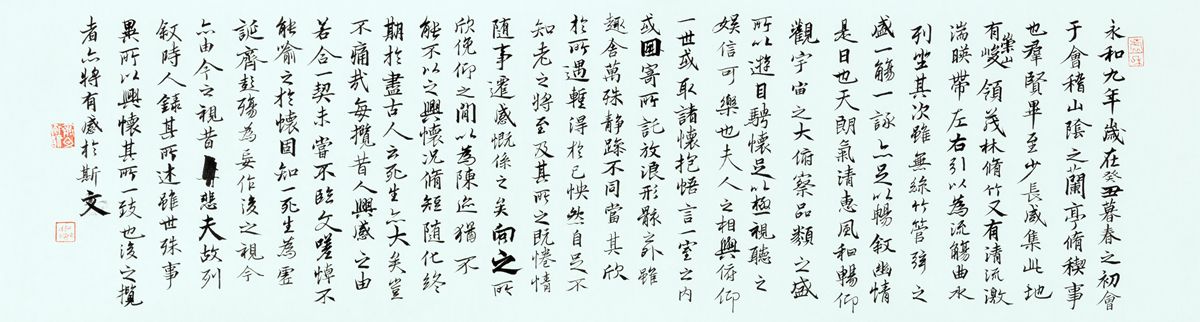 永和九年歲在癸丑暮春之初會
于會稽山陰之蘭亭脩稧事
也羣賢畢至少長咸集此地
有崇山峻領茂林脩竹又有清流激
湍暎帶左右引以為流觴曲水
列坐其次雖無絲竹管弦之
盛一觴一詠亦足以暢敘幽情
是日也天朗氣清惠風和暢仰
觀宇宙之大俯察品類之盛
所以遊目騁懷足以極視聽之
娛信可樂也夫人之相與俯仰
一世或取諸懷抱悟言一室之內
或因寄所託放浪形骸之外雖
趣舍萬殊靜躁不同當其欣
於所遇蹔得於己怏然自足不
知老之將至及其所之既惓情
隨事遷感慨係之矣向之所
欣俛仰之間以為陳迹猶不
能不以之興懷況脩短隨化終
期於盡古人云死生亦大矣豈
不痛哉每攬昔人興感之由
若合一契未嘗不臨文嗟悼不
能喻之於懷固知一死生為虛
誕齊彭殤為妄作後之視今
亦由今之視昔悲夫故列
敘時人錄其所述雖世殊事
異所以興懷其所一致也後之攬
者亦將有感於斯文